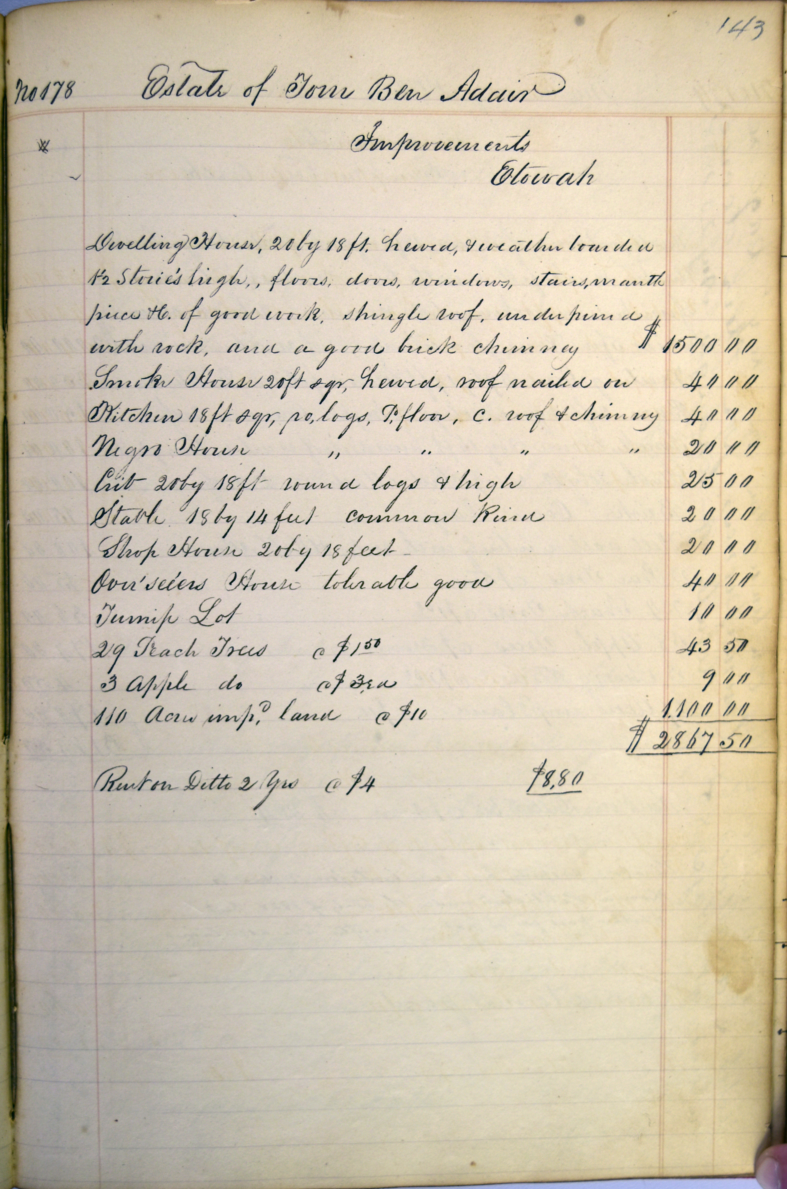 143
No 178 Estate of Tom Ben Adair
Improvements
Etowah
Dwelling House, 20 by 18 ft. hewed, & weather boarded
1½ Storie's high,, floors, doors, windows, stairs, mantle
piece &c. of good work, shingle roof, underpined
with rock, and a good brick chimney $ 1500 00
Smoke House 20ft sqr, hewed, roof nailed on 40 00
Kitchen 18ft sqr, ro, logs, P. floor, c. roof & chimny 40 00
Negro House " " " " 20 00
Crib 20 by 18ft round logs & high 25 00
Stable 18 by 14 feet common kind 20 00
Shop House 20 by 18 feet 20 00
Over'seers House tolerable good 40 00
Turnip Lot 10 00
29 Peach Trees @ $1 50 43 50
3 Apple do @ $3, ea 9 00
110 Acres imp.d land @ $10 1.100 00
$ 2867 50
Rent on Ditto 2 Yrs @ $4 $8,80